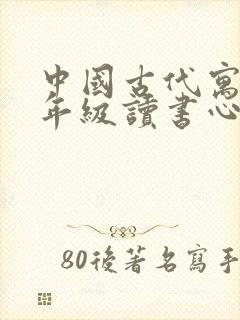 中國古代寓
年級讀書心
80後著名寫手